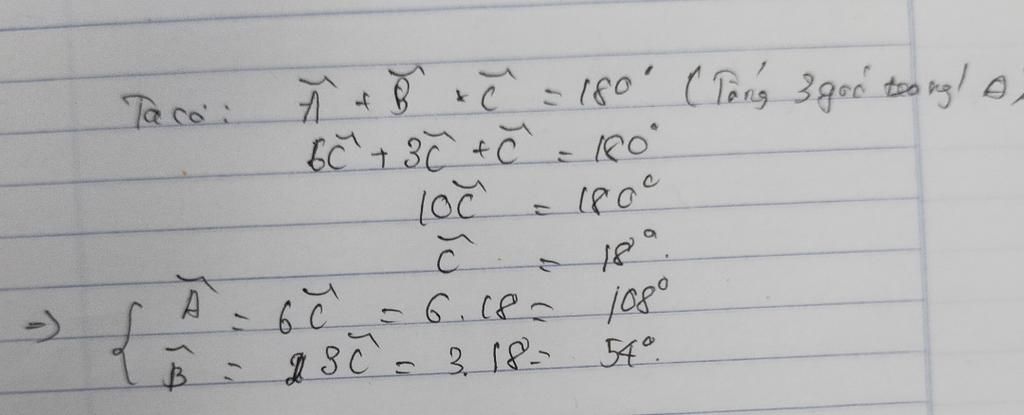 Ta có: Â + B̂ + Ĉ = 180° (Tổng 3 góc trong Δ)
6Ĉ + 3Ĉ + Ĉ = 180°
10Ĉ = 180°
Ĉ = 18°.
=> { Â = 6Ĉ = 6.18 = 108°
B̂ = 3Ĉ = 3.18 = 54°.